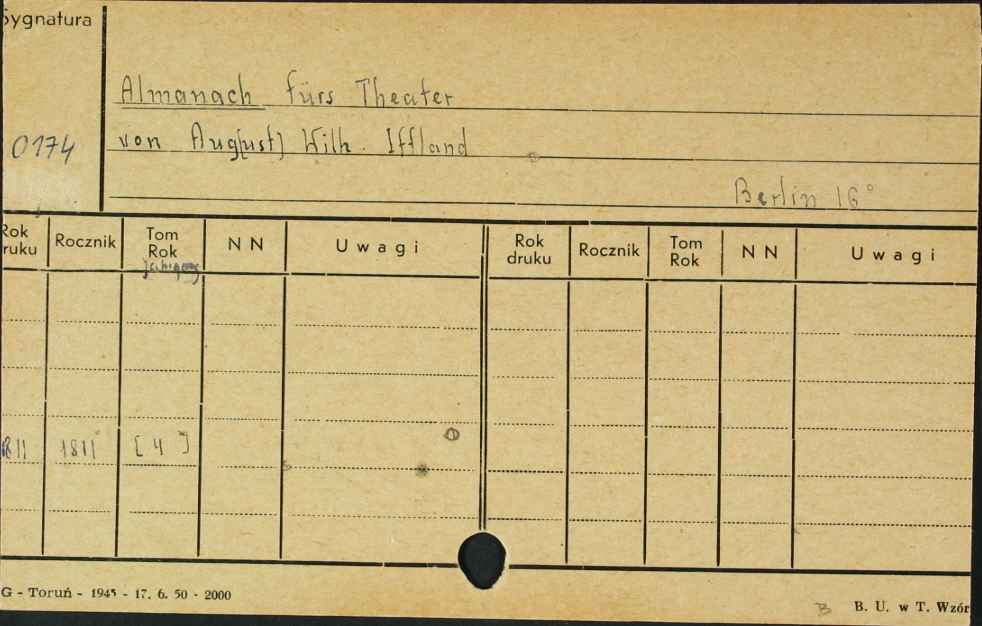 Sygnatura
Almanach fürs Theater
0174
von Aug[ust] Wilh. Iffland
Berlin 16°
Rok druku Rocznik Tom Rok N N Uwagi Rok druku Rocznik Tom Rok N N Uwagi
1811 1811 [4]
G - Toruń - 1945 - 17. 6. 50 - 2000
B B. U. w T. Wzór